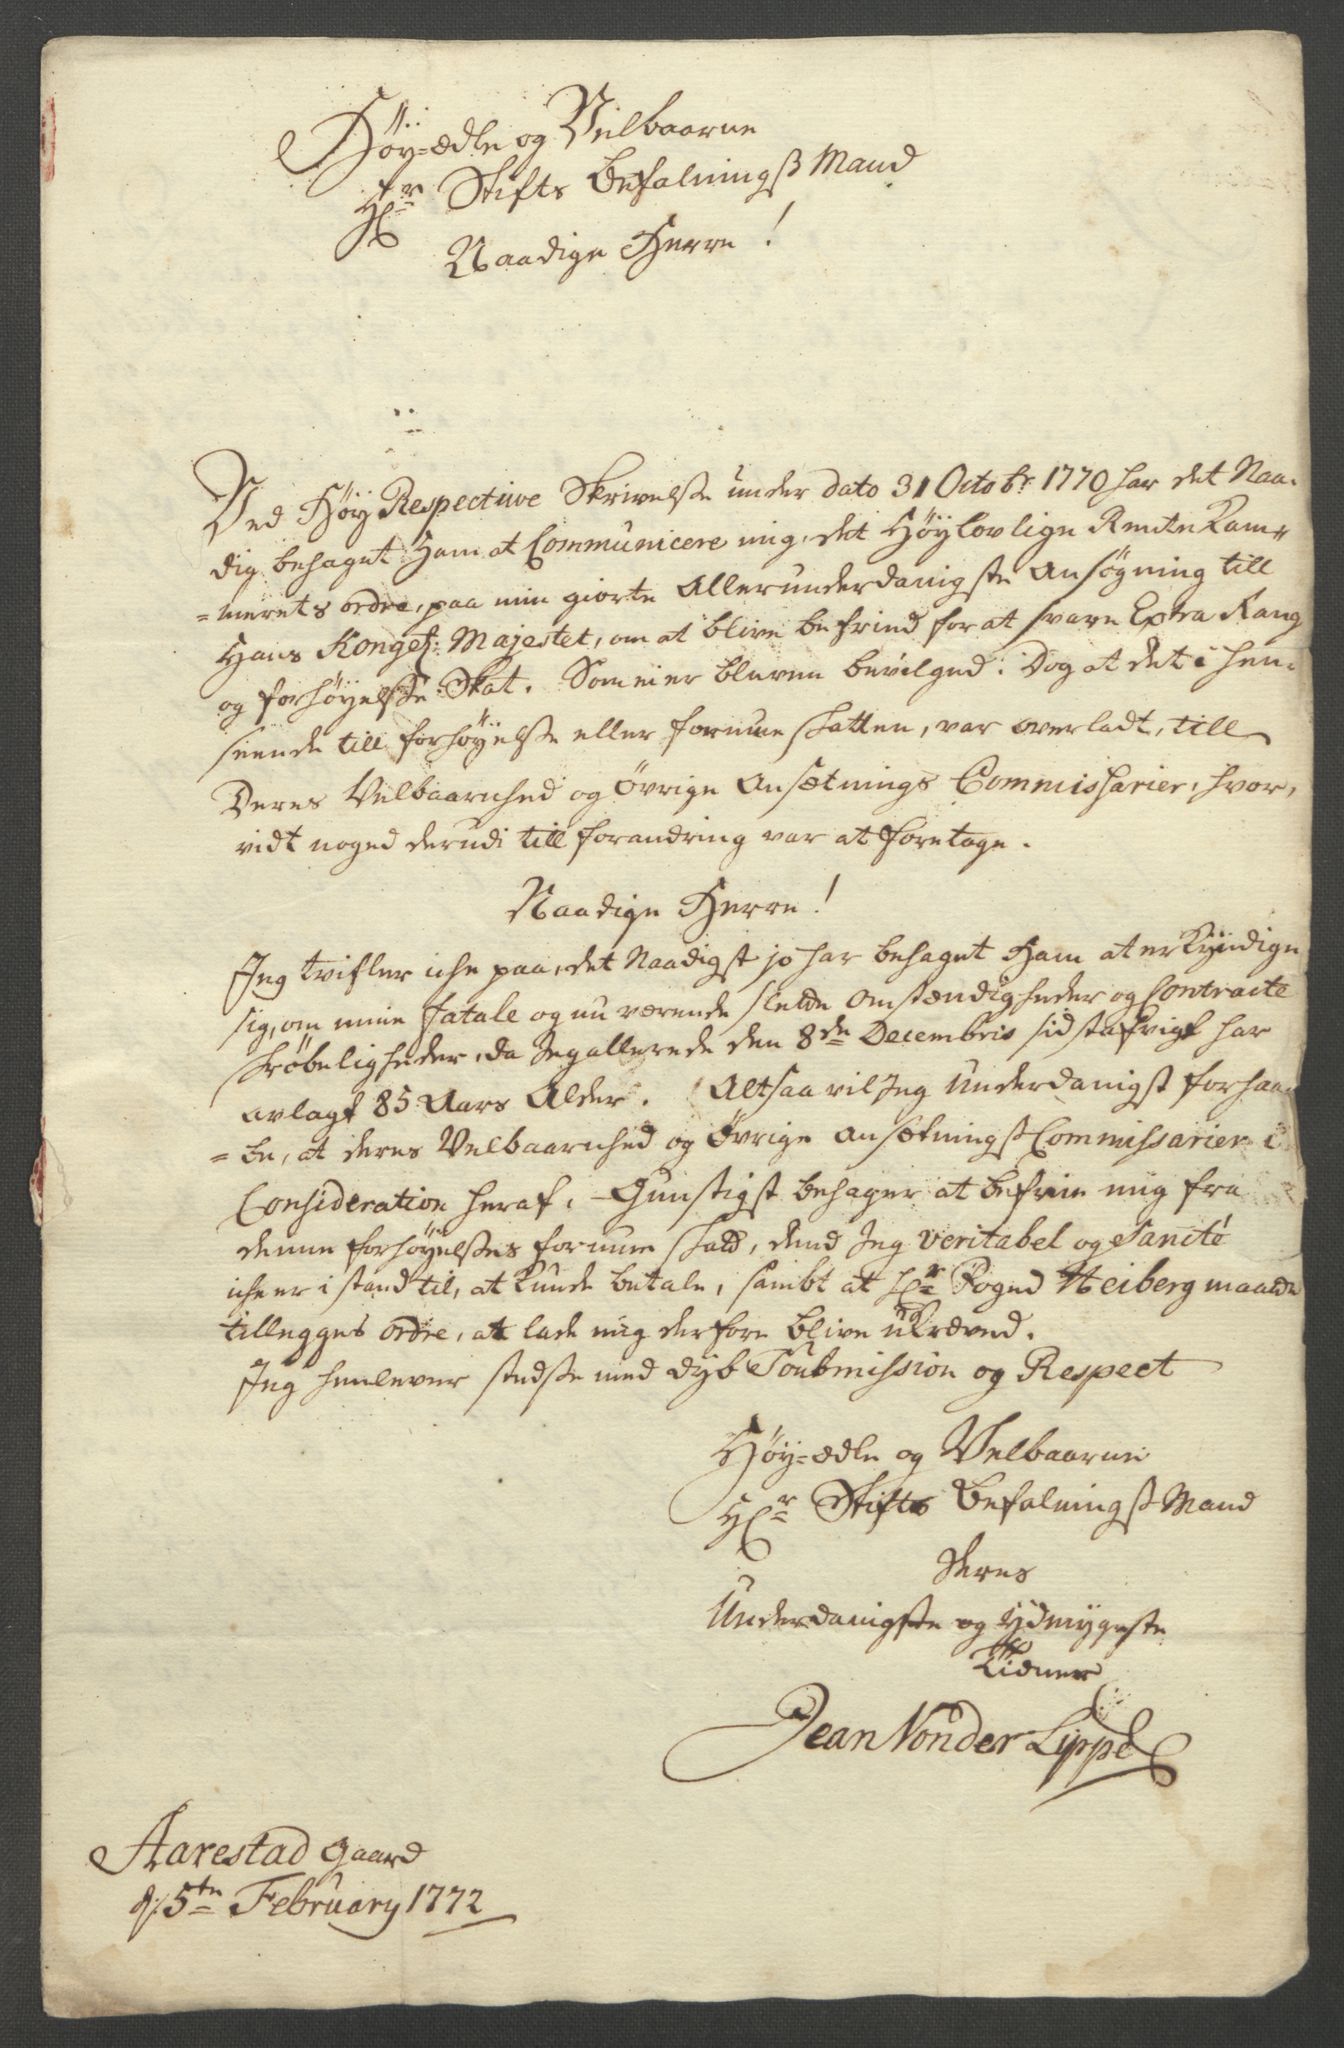 Höy-ædle og Velbaarne
Hr Stifts Befalningsß Mand
Naadige Herre!
Ved Höy Respective Skrivelse under dato 31 Octobr 1770 har det Naa-
dig behaget Ham at Communicere mig, det Höylovlige Rente Kam-
=merets ordre, paa min giorte Allerunderdanigste Ansögning till
Hans Kongel: Majestet, om at blive befried for at svare Extra Rang
og forhöyelse Skat. Som ei er bleven bevilged: Dog at det i hen-
seende till forhöyelse eller formue skatten, var overladt, till
Deres Velbaarnhed og Övrige Ansætnings Commissarier, hvor,
vidt noged derudi till forandring var at foretage.
Naadige Herre!
Jeg tvifler iche paa, det Naadigst jo har behaget Ham at erkyndige
sig, om mine fatale og nu værende slette omstændigheder og Contracte
skröbeligheder, da Jeg allerede den 8de Decembris sidstafvigt har
avlagt 85 Aars Alder. Altsaa vil Jeg Underdanigst forhaa-
=be, at deres Velbaarnhed og Övrige ansætningsß Commissarier i
Consideration heraf, Gunstigst behager at befrie mig fra
denne forhöyelses formue skatt, dend Jeg veritabel og Sancté
iche er i stand til, at kunde betale, sambt at Hr Foged Heiberg maatte
tillegges ordre, at lade mig derfore blive ukræved.
Jeg henlever stedse med dyb Soubmission og Respect
Höy-ædle og Velbaarne
Hr Stifts Befalningsß Mand
Deres
Underdanigste og ydmygeste
Tiener
Jean Vonder Lippe
Aarestad gaard
d: 5te February 1772